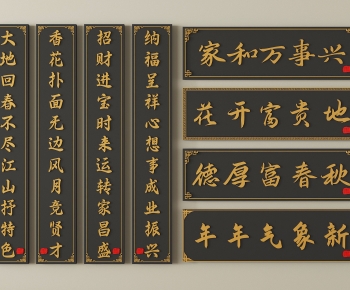 大地回春不尽江山抒特色
香花扑面无边风月竞贤才
招财进宝时来运转家昌盛
纳福呈祥心想事成业振兴
家和万事兴
花开富贵地
德厚富春秋
年年气象新